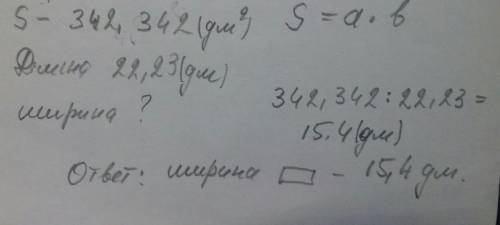 S - 342, 342 (дм²) S = a · b
Длина 22,23 (дм)
ширина ?
342,342 : 22,23 =
15.4 (дм)
Ответ: ширина ▭ - 15,4 дм.